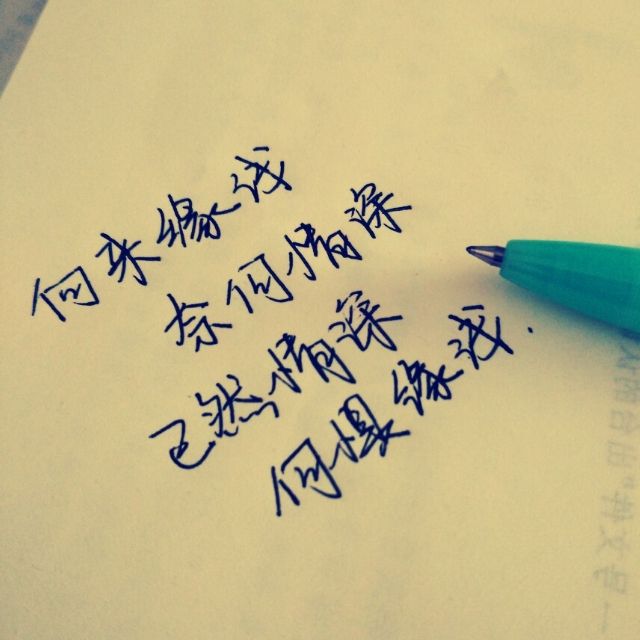 何来缘浅
奈何情深
已然情深
何惧缘浅.